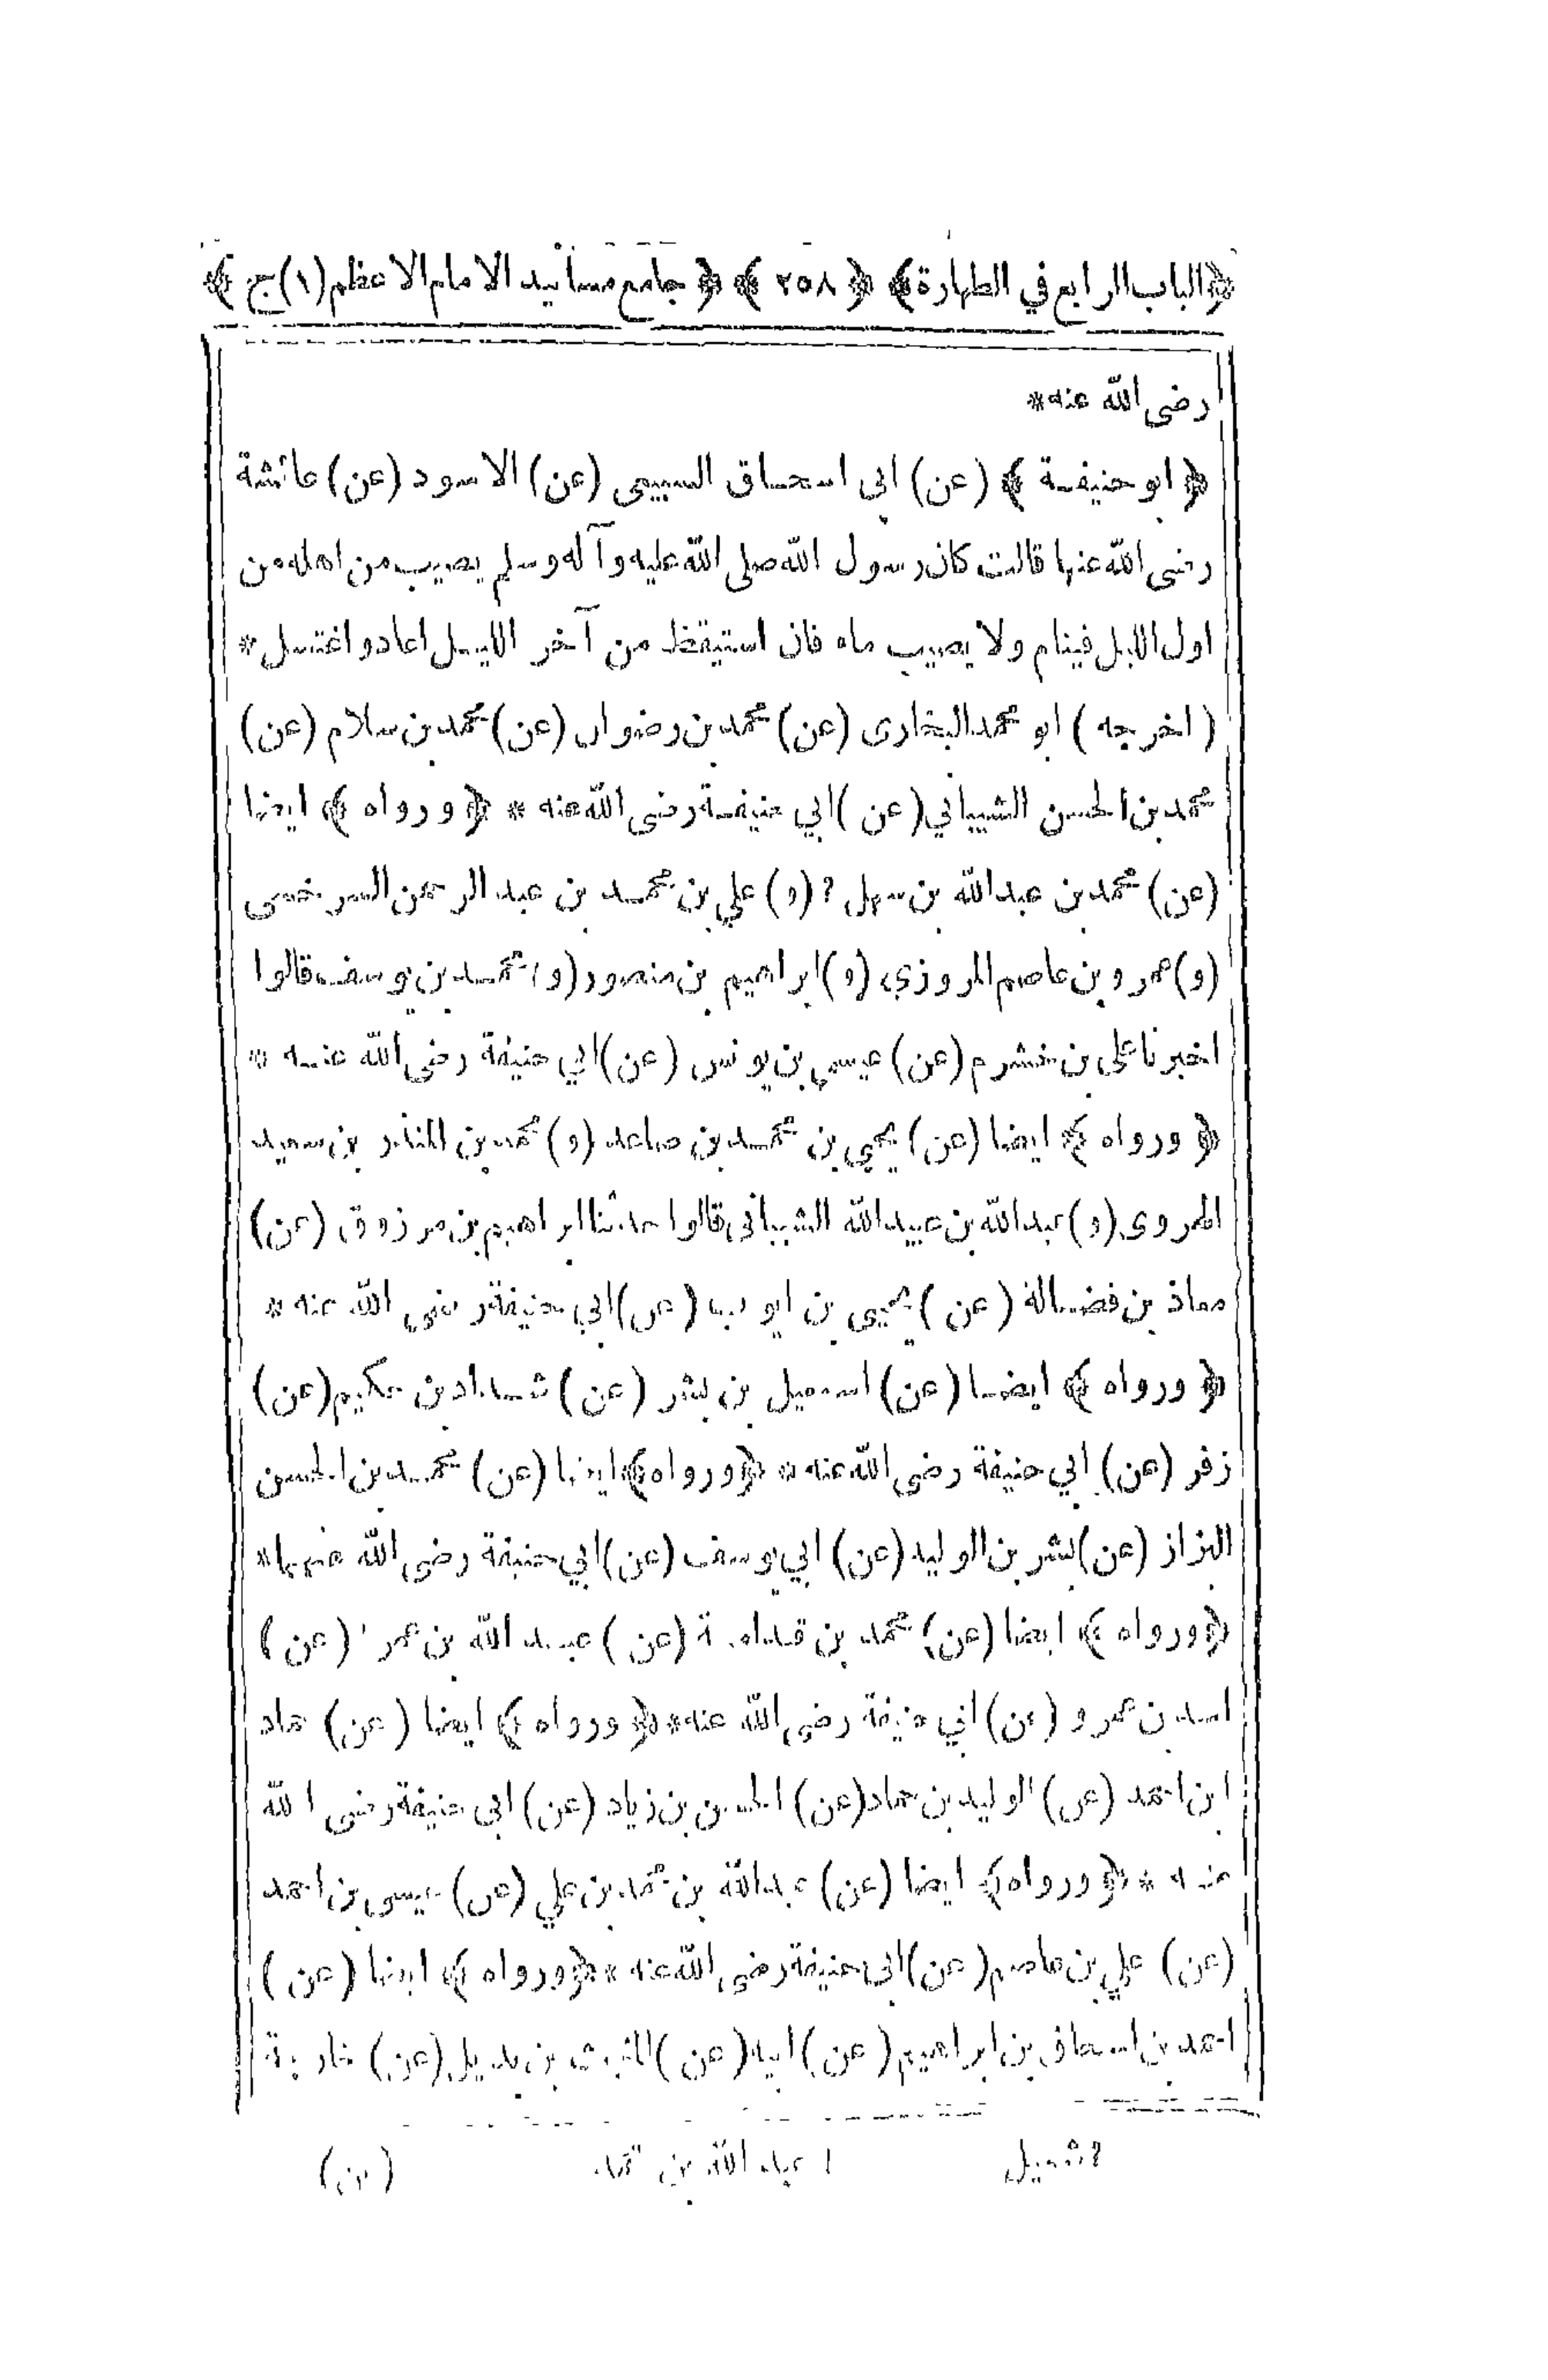 ﴿الباب الرابع في الطهارة﴾ ﴿ ٢٥٨ ﴾ ﴿ جامع مسانيد الامام الاعظم (١) ج ﴾
رضى الله عنه *
﴿ ابو حنيفة ﴾ (عن) ابى اسحاق السبيعى (عن) الاسود (عن) عائشة
رضى الله عنها قالت كان رسول الله صلى الله عليه وآله وسلم يصيب من اهله من
اول الليل فينام ولا يصيب ماء فان استيقظ من آخر الليل اعاد واغتسل *
( اخرجه ) ابو محمد البخارى (عن) محمد بن رضوان (عن) محمد بن سلام (عن)
محمد بن الحسن الشيباني (عن) ابي حنيفة رضى الله عنه * ﴿ ورواه ﴾ ايضا
(عن) محمد بن عبد الله بن سهل ٢ (و) علي بن محمد بن عبد الرحمن السرخسى
(و) عمرو بن عاصم المروزي (و) ابراهيم بن منصور (و) محمد بن يوسف قالوا
اخبرنا على بن خشرم (عن) عيسى بن يونس (عن) ابي حنيفة رضى الله عنه *
﴿ ورواه ﴾ ايضا (عن) يحيى بن محمد بن صاعد (و) محمد بن المنذر بن سعيد
الهروى (و) عبد الله بن عبيد الله الشيبانى قالوا حدثنا ابراهيم بن مرزوق (عن)
معاذ بن فضالة (عن) يحيى بن ايوب (عن) ابي حنيفة رضى الله عنه *
﴿ ورواه ﴾ ايضا (عن) اسمعيل بن بشر (عن) شداد بن حكيم (عن)
زفر (عن) ابي حنيفة رضى الله عنه * ﴿ورواه﴾ ايضا (عن) محمد بن الحسن
البزاز (عن) بشر بن الوليد (عن) ابي يوسف (عن) ابي حنيفة رضى الله عنهما *
﴿ورواه ﴾ ايضا (عن) محمد بن قدامة (عن) عبد الله بن عمر ١ (عن)
اسد بن عمرو (عن) ابي حنيفة رضى الله عنه * ﴿ ورواه ﴾ ايضا (عن) حماد
ابن احمد (عن) الوليد بن حماد (عن) الحسن بن زياد (عن) ابى حنيفة رضى الله
عنه * ﴿ورواه﴾ ايضا (عن) عبد الله بن محمد بن علي (عن) عيسى بن احمد
(عن) علي بن عاصم (عن) ابى حنيفة رضى الله عنه * ﴿ورواه ﴾ ايضا (عن)
احمد بن اسحاق بن ابراهيم (عن) ابيه (عن) بن بديل (عن) خارجة
٢ ١ عبد الله بن محمد (بن)